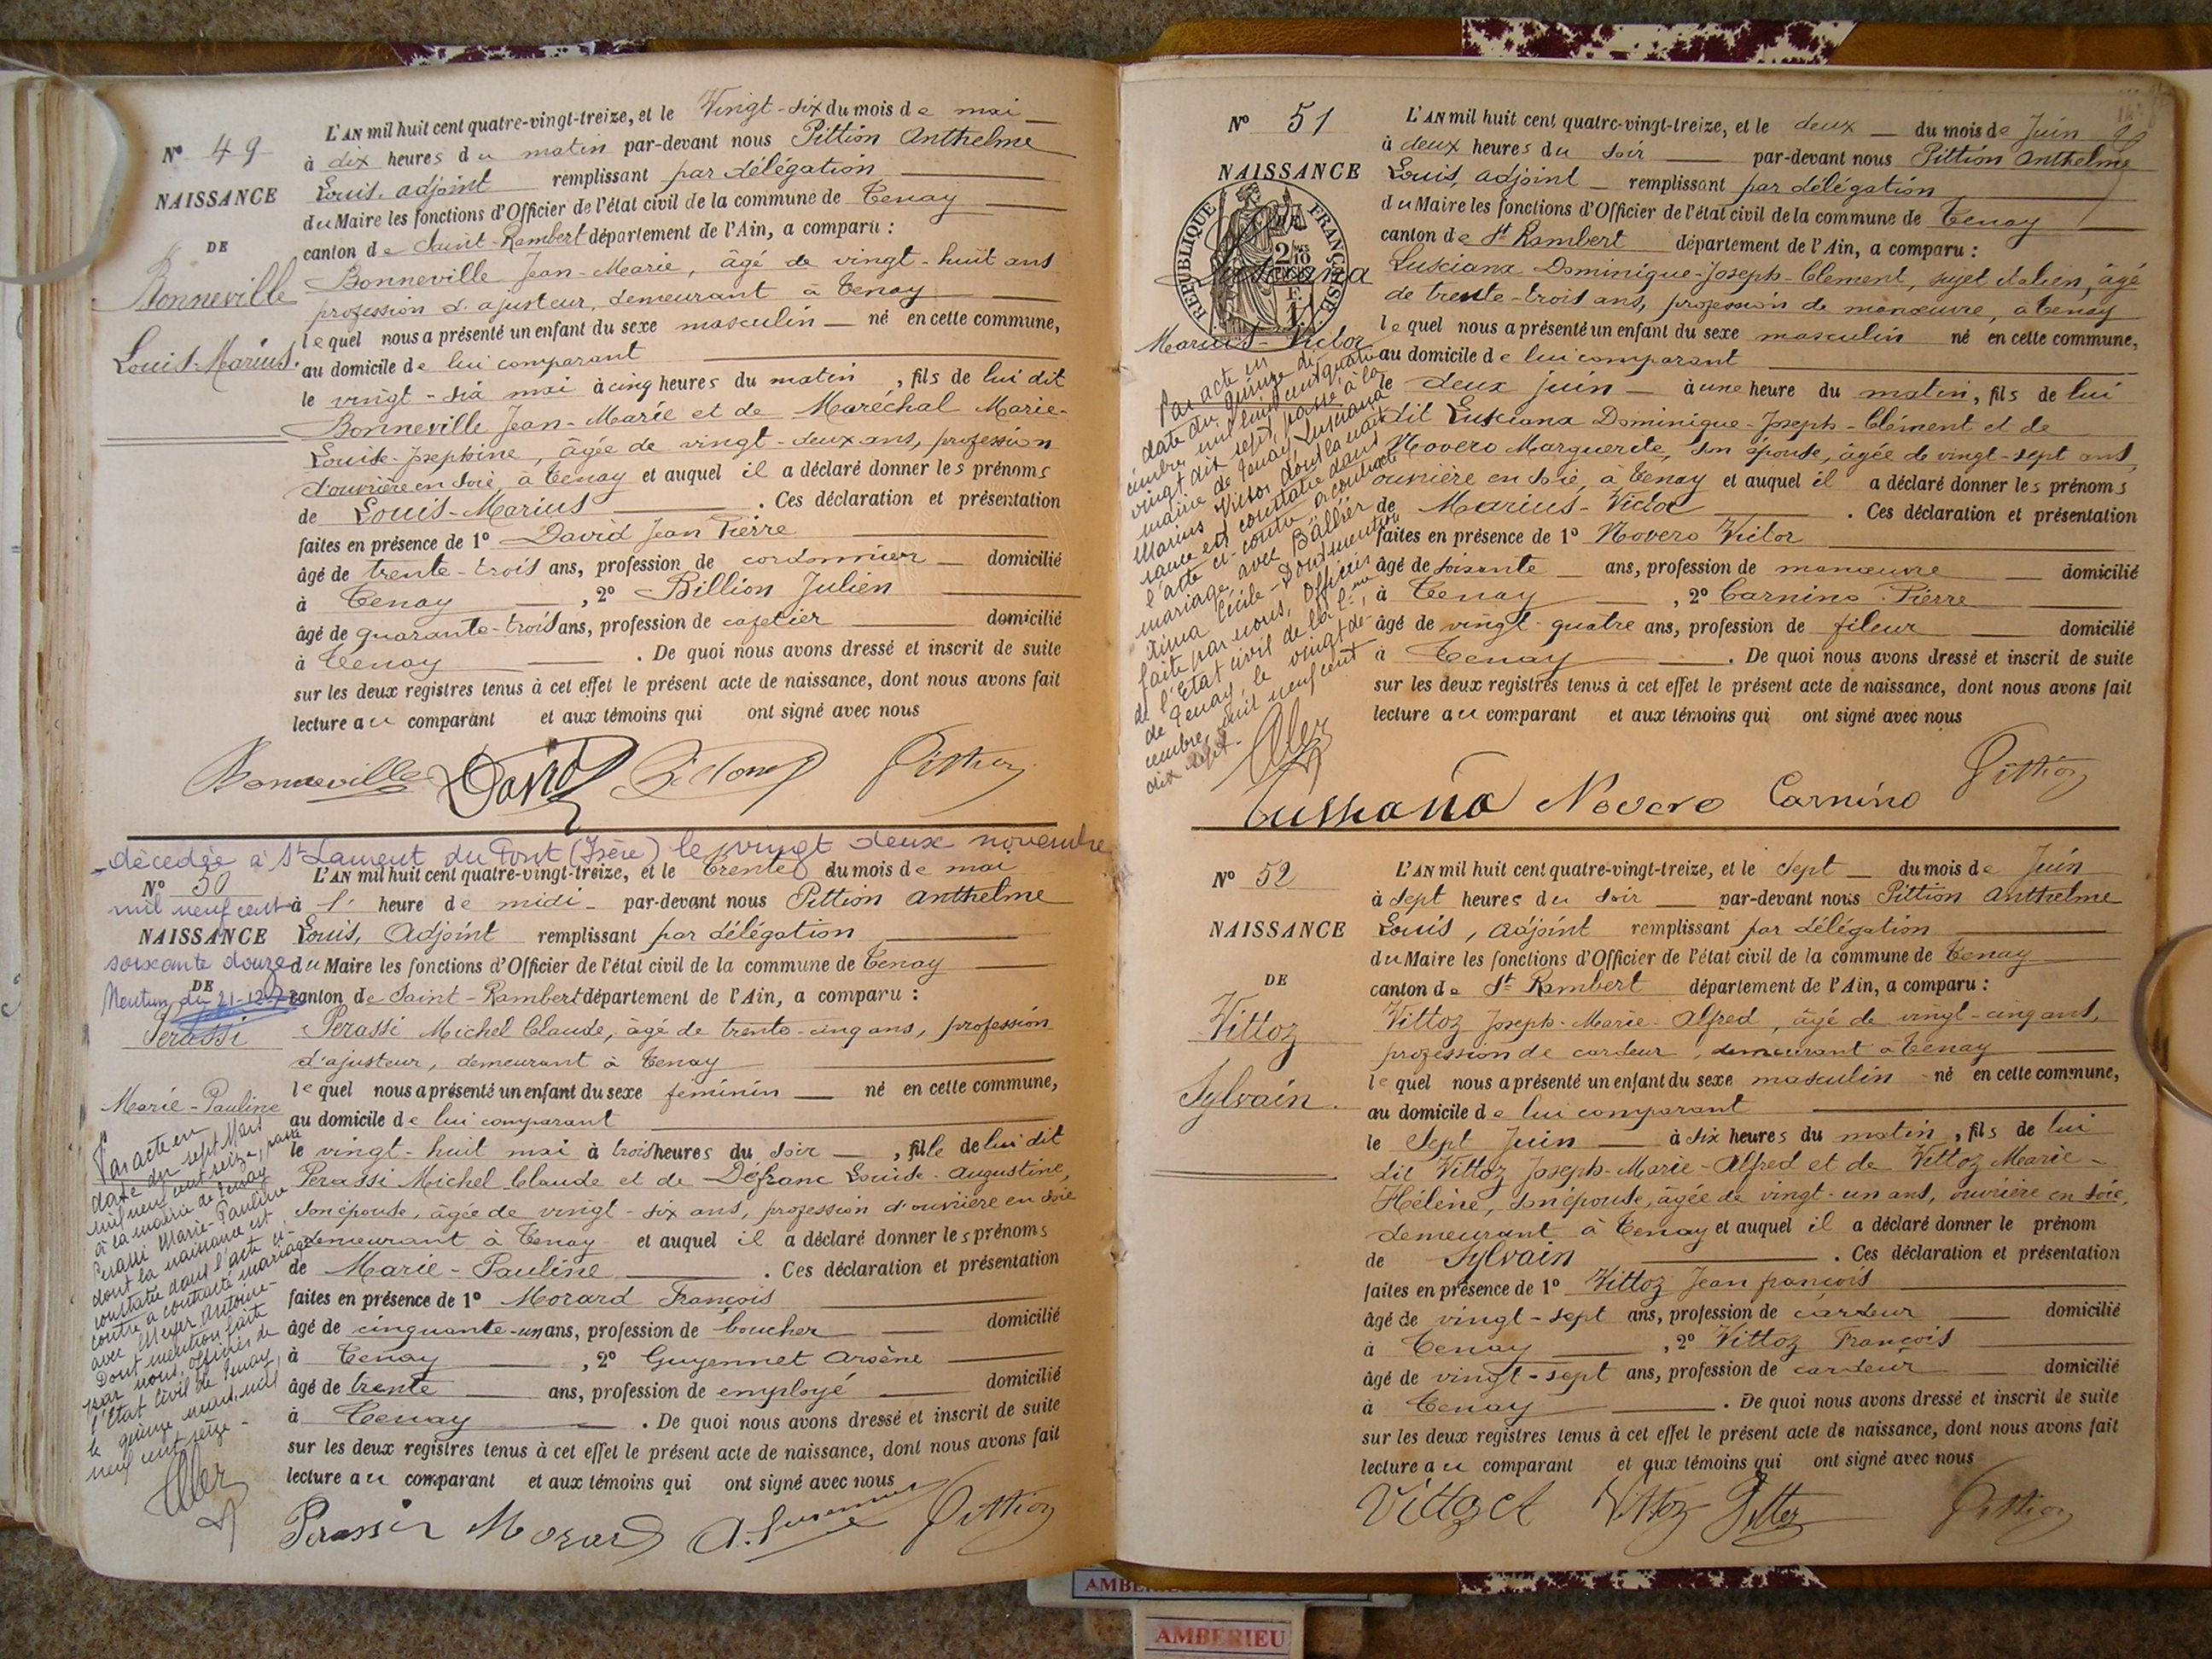 N° 49
NAISSANCE
DE
Bonneville
Louis-Marius.
L'AN mil huit cent quatre-vingt-treize, et le Vingt-six du mois de mai
à dix heures du matin par-devant nous Pittion Anthelme
Louis, adjoint remplissant par délégation
du Maire les fonctions d'Officier de l'état civil de la commune de Tenay
canton de Saint-Rambert département de l'Ain, a comparu :
Bonneville Jean-Marie, âgé de vingt-huit ans
profession d'ajusteur, demeurant à Tenay
lequel nous a présenté un enfant du sexe masculin né en cette commune,
au domicile de lui comparant
le vingt-six mai à cinq heures du matin, fils de lui dit
Bonneville Jean-Marie et de Maréchal Marie-
Louise-Josephine, âgée de vingt-deux ans, profession
d'ouvrière en soie, à Tenay et auquel il a déclaré donner les prénoms
de Louis-Marius. Ces déclaration et présentation
faites en présence de 1° David Jean Pierre
âgé de trente-trois ans, profession de cordonnier domicilié
à Tenay, 2° Billion Julien
âgé de quarante-trois ans, profession de cafetier domicilié
à Tenay. De quoi nous avons dressé et inscrit de suite
sur les deux registres tenus à cet effet le présent acte de naissance, dont nous avons fait
lecture au comparant et aux témoins qui ont signé avec nous
Bonneville David Pittion
décédée à St Laurent du Pont (Isère) le vingt deux novembre
mil neuf cent
soixante douze
Mention du 21-12-72
N° 50
NAISSANCE
DE
Perassi
Marie-Pauline
Par acte en
date du sept Mars
mil neuf cent seize, passé
à la mairie de Tenay
Perassi Marie-Pauline
dont la naissance est
constatée dans l'acte ci-
contre a contracté mariage
avec Meyer Antoine-
Dont mention faite
par nous, officier de
l'Etat civil de Tenay
le quinze mars mil
neuf cent seize-
L'AN mil huit cent quatre-vingt-treize, et le Trente du mois de mai
à l' heure de midi par-devant nous Pittion Anthelme
Louis, Adjoint remplissant par délégation
du Maire les fonctions d'Officier de l'état civil de la commune de Tenay
canton de Saint-Rambert département de l'Ain, a comparu :
Perassi Michel Claude, âgé de trente-cinq ans, profession
d'ajusteur, demeurant à Tenay
lequel nous a présenté un enfant du sexe féminin né en cette commune,
au domicile de lui comparant
le vingt-huit mai à trois heures du soir, fille de lui dit
Perassi Michel Claude et de Défranc Louise-Augustine,
son épouse, âgée de vingt-six ans, profession d'ouvrière en soie
demeurant à Tenay et auquel il a déclaré donner les prénoms
de Marie-Pauline. Ces déclaration et présentation
faites en présence de 1° Morard François
âgé de cinquante-un ans, profession de boucher domicilié
à Tenay, 2° Guyennet Arsène
âgé de trente ans, profession de employé domicilié
à Tenay. De quoi nous avons dressé et inscrit de suite
sur les deux registres tenus à cet effet le présent acte de naissance, dont nous avons fait
lecture au comparant et aux témoins qui ont signé avec nous
Morard Pittion
N° 51
NAISSANCE
REPUBLIQUE FRANÇAISE
Lusciana
Marius-Victor
Par acte en
date du quinze dé-
cembre mil neuf cent quatre
vingt dix sept, passé à la
mairie de Tenay, Lusciana
Marius Victor dont la nais-
sance est constatée dans
l'acte ci-contre a contracté
mariage avec Bâllier
Cécile-Dont mention
faite par nous, Officier
de l'Etat civil de la Cne
de Tenay, le vingt dé-
cembre mil neuf cent
dix sept.
L'AN mil huit cent quatre-vingt-treize, et le deux du mois de Juin
à deux heures du soir par-devant nous Pittion Anthelme
Louis, adjoint remplissant par délégation
du Maire les fonctions d'Officier de l'état civil de la commune de Tenay
canton de St Rambert département de l'Ain, a comparu :
Lusciana Dominique-Joseph-Clement, sujet italien, âgé
de trente-trois ans, profession de manœuvre, à Tenay
lequel nous a présenté un enfant du sexe masculin né en cette commune,
au domicile de lui comparant
le deux juin à une heure du matin, fils de lui
dit Lusciana Dominique-Joseph-Clément et de
Novero Marguerite, son épouse, âgée de vingt-sept ans,
ouvrière en soie, à Tenay et auquel il a déclaré donner les prénoms
de Marius-Victor. Ces déclaration et présentation
faites en présence de 1° Novero Victor
âgé de soixante ans, profession de manœuvre domicilié
à Tenay, 2° Carnino Pierre
âgé de vingt-quatre ans, profession de fileur domicilié
à Tenay. De quoi nous avons dressé et inscrit de suite
sur les deux registres tenus à cet effet le présent acte de naissance, dont nous avons fait
lecture au comparant et aux témoins qui ont signé avec nous
Pittion
Novero Carnino
N° 52
NAISSANCE
DE
Vittoz
Sylvain.
L'AN mil huit cent quatre-vingt-treize, et le Sept du mois de Juin
à sept heures du soir par-devant nous Pittion Anthelme
Louis, adjoint remplissant par délégation
du Maire les fonctions d'Officier de l'état civil de la commune de Tenay
canton de St Rambert département de l'Ain, a comparu :
Vittoz Joseph-Marie-Alfred, âgé de vingt-cinq ans,
profession de cardeur, demeurant à Tenay
lequel nous a présenté un enfant du sexe masculin né en cette commune,
au domicile de lui comparant
le Sept Juin à six heures du matin, fils de lui
dit Vittoz Joseph-Marie-Alfred et de Vittoz Marie-
Hélène, son épouse, âgée de vingt-un ans, ouvrière en soie,
demeurant à Tenay et auquel il a déclaré donner le prénom
de Sylvain. Ces déclaration et présentation
faites en présence de 1° Vittoz Jean françois
âgé de vingt-sept ans, profession de cardeur domicilié
à Tenay, 2° Vittoz François
âgé de vingt-sept ans, profession de cardeur domicilié
à Tenay. De quoi nous avons dressé et inscrit de suite
sur les deux registres tenus à cet effet le présent acte de naissance, dont nous avons fait
lecture au comparant et aux témoins qui ont signé avec nous
Vittoz A Vittoz Pittion
AMBERIEU